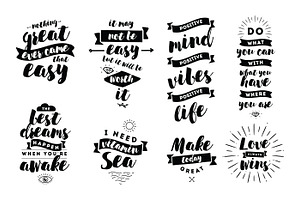 nothing
great
ever came
that
easy
it may
not be
easy
but it will be
worth
it
POSITIVE
mind
POSITIVE
vibes
POSITIVE
life
DO
WHAT
YOU CAN
WITH
what you
HAVE
WHERE
YOU ARE
THE
best
dreams
HAPPEN
WHEN YOU'RE
awake
I NEED
vitamin
Sea
Make
today
GREAT
Love
ALWAYS
wins